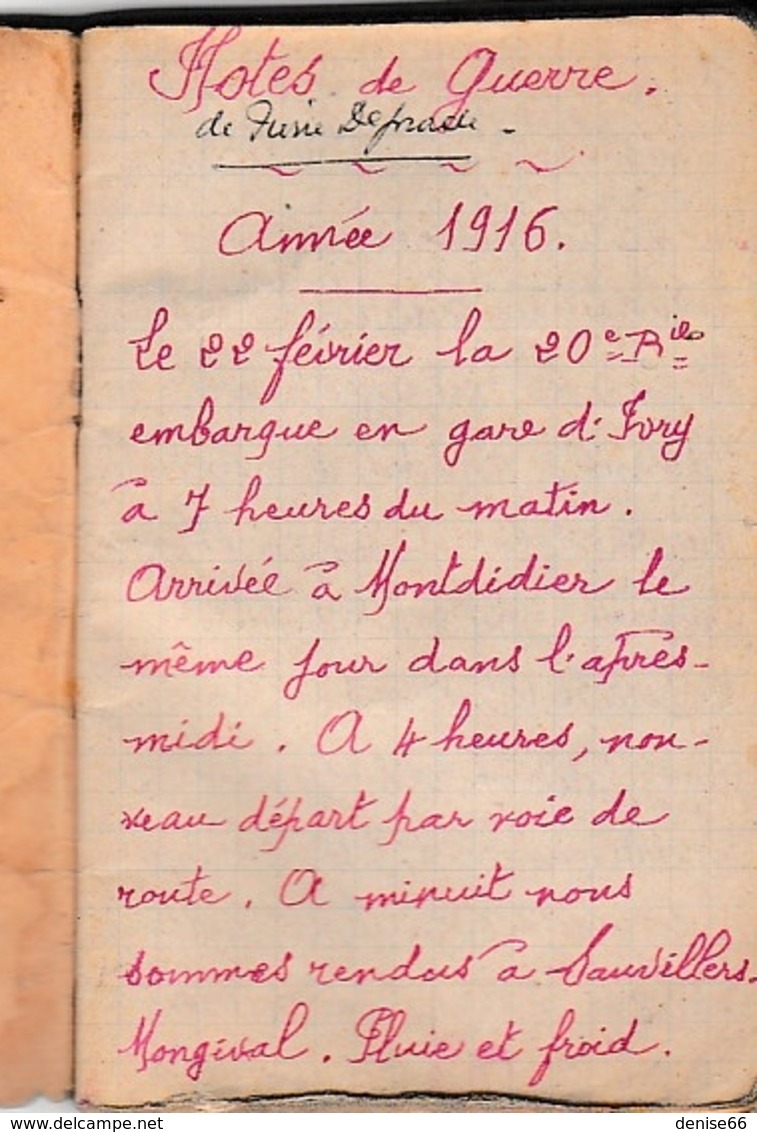 Notes de Guerre.
de
Année 1916.
Le 22 février la 20e Bie
embarque en gare d'Ivry
à 7 heures du matin.
Arrivée à Montdidier le
même jour dans l'après-
midi. A 4 heures, nou-
veau départ par voie de
route. A minuit nous
sommes rendus à Sauvillers-
Mongival. Pluie et froid.
denise66